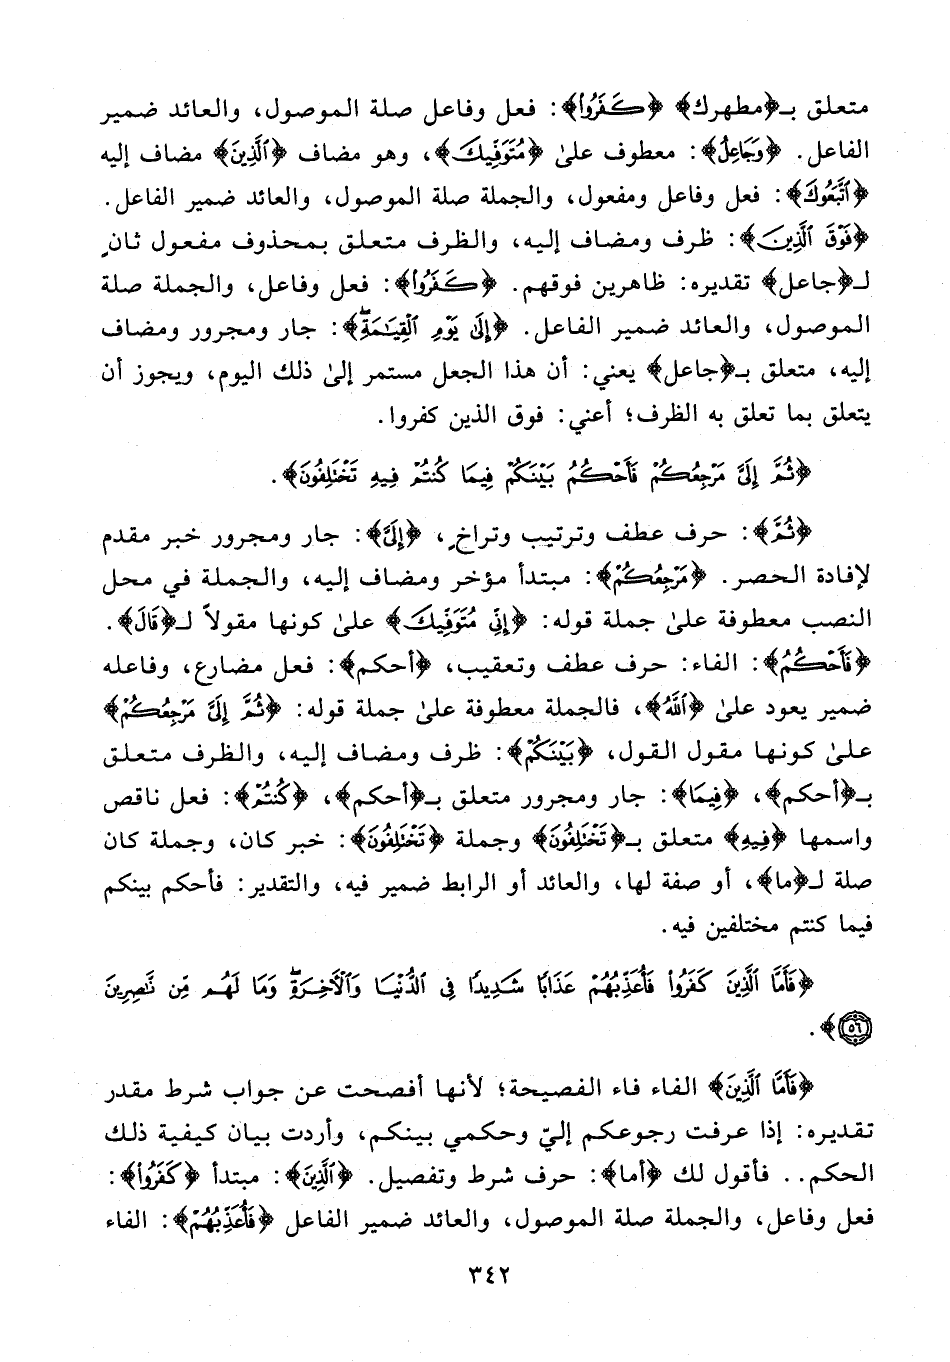 متعلق بـ﴿مطهرك﴾ ﴿كَفَرُوا﴾: فعل وفاعل صلة الموصول، والعائد ضمير
الفاعل. ﴿وَجَاعِلُ﴾: معطوف على ﴿مُتَوَفِّيكَ﴾، وهو مضاف ﴿ٱلَّذِينَ﴾ مضاف إليه
﴿ٱتَّبَعُوكَ﴾: فعل وفاعل ومفعول، والجملة صلة الموصول، والعائد ضمير الفاعل.
﴿فَوْقَ ٱلَّذِينَ﴾: ظرف ومضاف إليه، والظرف متعلق بمحذوف مفعول ثانٍ
لـ﴿جاعل﴾ تقديره: ظاهرين فوقهم. ﴿كَفَرُوٓا﴾: فعل وفاعل، والجملة صلة
الموصول، والعائد ضمير الفاعل. ﴿إِلَىٰ يَوْمِ ٱلْقِيَـٰمَةِۖ﴾: جار ومجرور ومضاف
إليه، متعلق بـ﴿جاعل﴾ يعني: أن هذا الجعل مستمر إلىٰ ذلك اليوم، ويجوز أن
يتعلق بما تعلق به الظرف؛ أعني: فوق الذين كفروا.
﴿ثُمَّ إِلَيَّ مَرْجِعُكُمْ فَأَحْكُمُ بَيْنَكُمْ فِيمَا كُنتُمْ فِيهِ تَخْتَلِفُونَ﴾.
﴿ثُمَّ﴾: حرف عطف وترتيب وتراخٍ، ﴿إِلَيَّ﴾: جار ومجرور خبر مقدم
لإفادة الحصر. ﴿مَرْجِعُكُمْ﴾: مبتدأ مؤخر ومضاف إليه، والجملة في محل
النصب معطوفة علىٰ جملة قوله: ﴿إِنِّي مُتَوَفِّيكَ﴾ علىٰ كونها مقولاً لـ﴿قَالَ﴾.
﴿فَأَحْكُمُ﴾: الفاء: حرف عطف وتعقيب، ﴿أحكم﴾: فعل مضارع، وفاعله
ضمير يعود علىٰ ﴿ٱللَّهُ﴾، فالجملة معطوفة علىٰ جملة قوله: ﴿ثُمَّ إِلَيَّ مَرْجِعُكُمْ﴾
علىٰ كونها مقول القول، ﴿بَيْنَكُمْ﴾: ظرف ومضاف إليه، والظرف متعلق
بـ﴿أحكم﴾، ﴿فِيمَا﴾: جار ومجرور متعلق بـ﴿أحكم﴾، ﴿كُنتُمْ﴾: فعل ناقص
واسمها ﴿فِيهِ﴾ متعلق بـ﴿تَخْتَلِفُونَ﴾ وجملة ﴿تَخْتَلِفُونَ﴾: خبر كان، وجملة كان
صلة لـ﴿ما﴾، أو صفة لها، والعائد أو الرابط ضمير فيه، والتقدير: فأحكم بينكم
فيما كنتم مختلفين فيه.
﴿فَأَمَّا ٱلَّذِينَ كَفَرُوا فَأُعَذِّبُهُمْ عَذَابًا شَدِيدًا فِي ٱلدُّنْيَا وَٱلْـَٔاخِرَةِۖ وَمَا لَهُم مِّن نَّـٰصِرِينَ
٥٦﴾.
﴿فَأَمَّا ٱلَّذِينَ﴾ الفاء فاء الفصيحة؛ لأنها أفصحت عن جواب شرط مقدر
تقديره: إذا عرفت رجوعكم إليّ وحكمي بينكم، وأردت بيان كيفية ذلك
الحكم.. فأقول لك ﴿أما﴾: حرف شرط وتفصيل. ﴿ٱلَّذِينَ﴾: مبتدأ ﴿كَفَرُوا﴾:
فعل وفاعل، والجملة صلة الموصول، والعائد ضمير الفاعل ﴿فَأُعَذِّبُهُمْ﴾: الفاء
٣٤٢